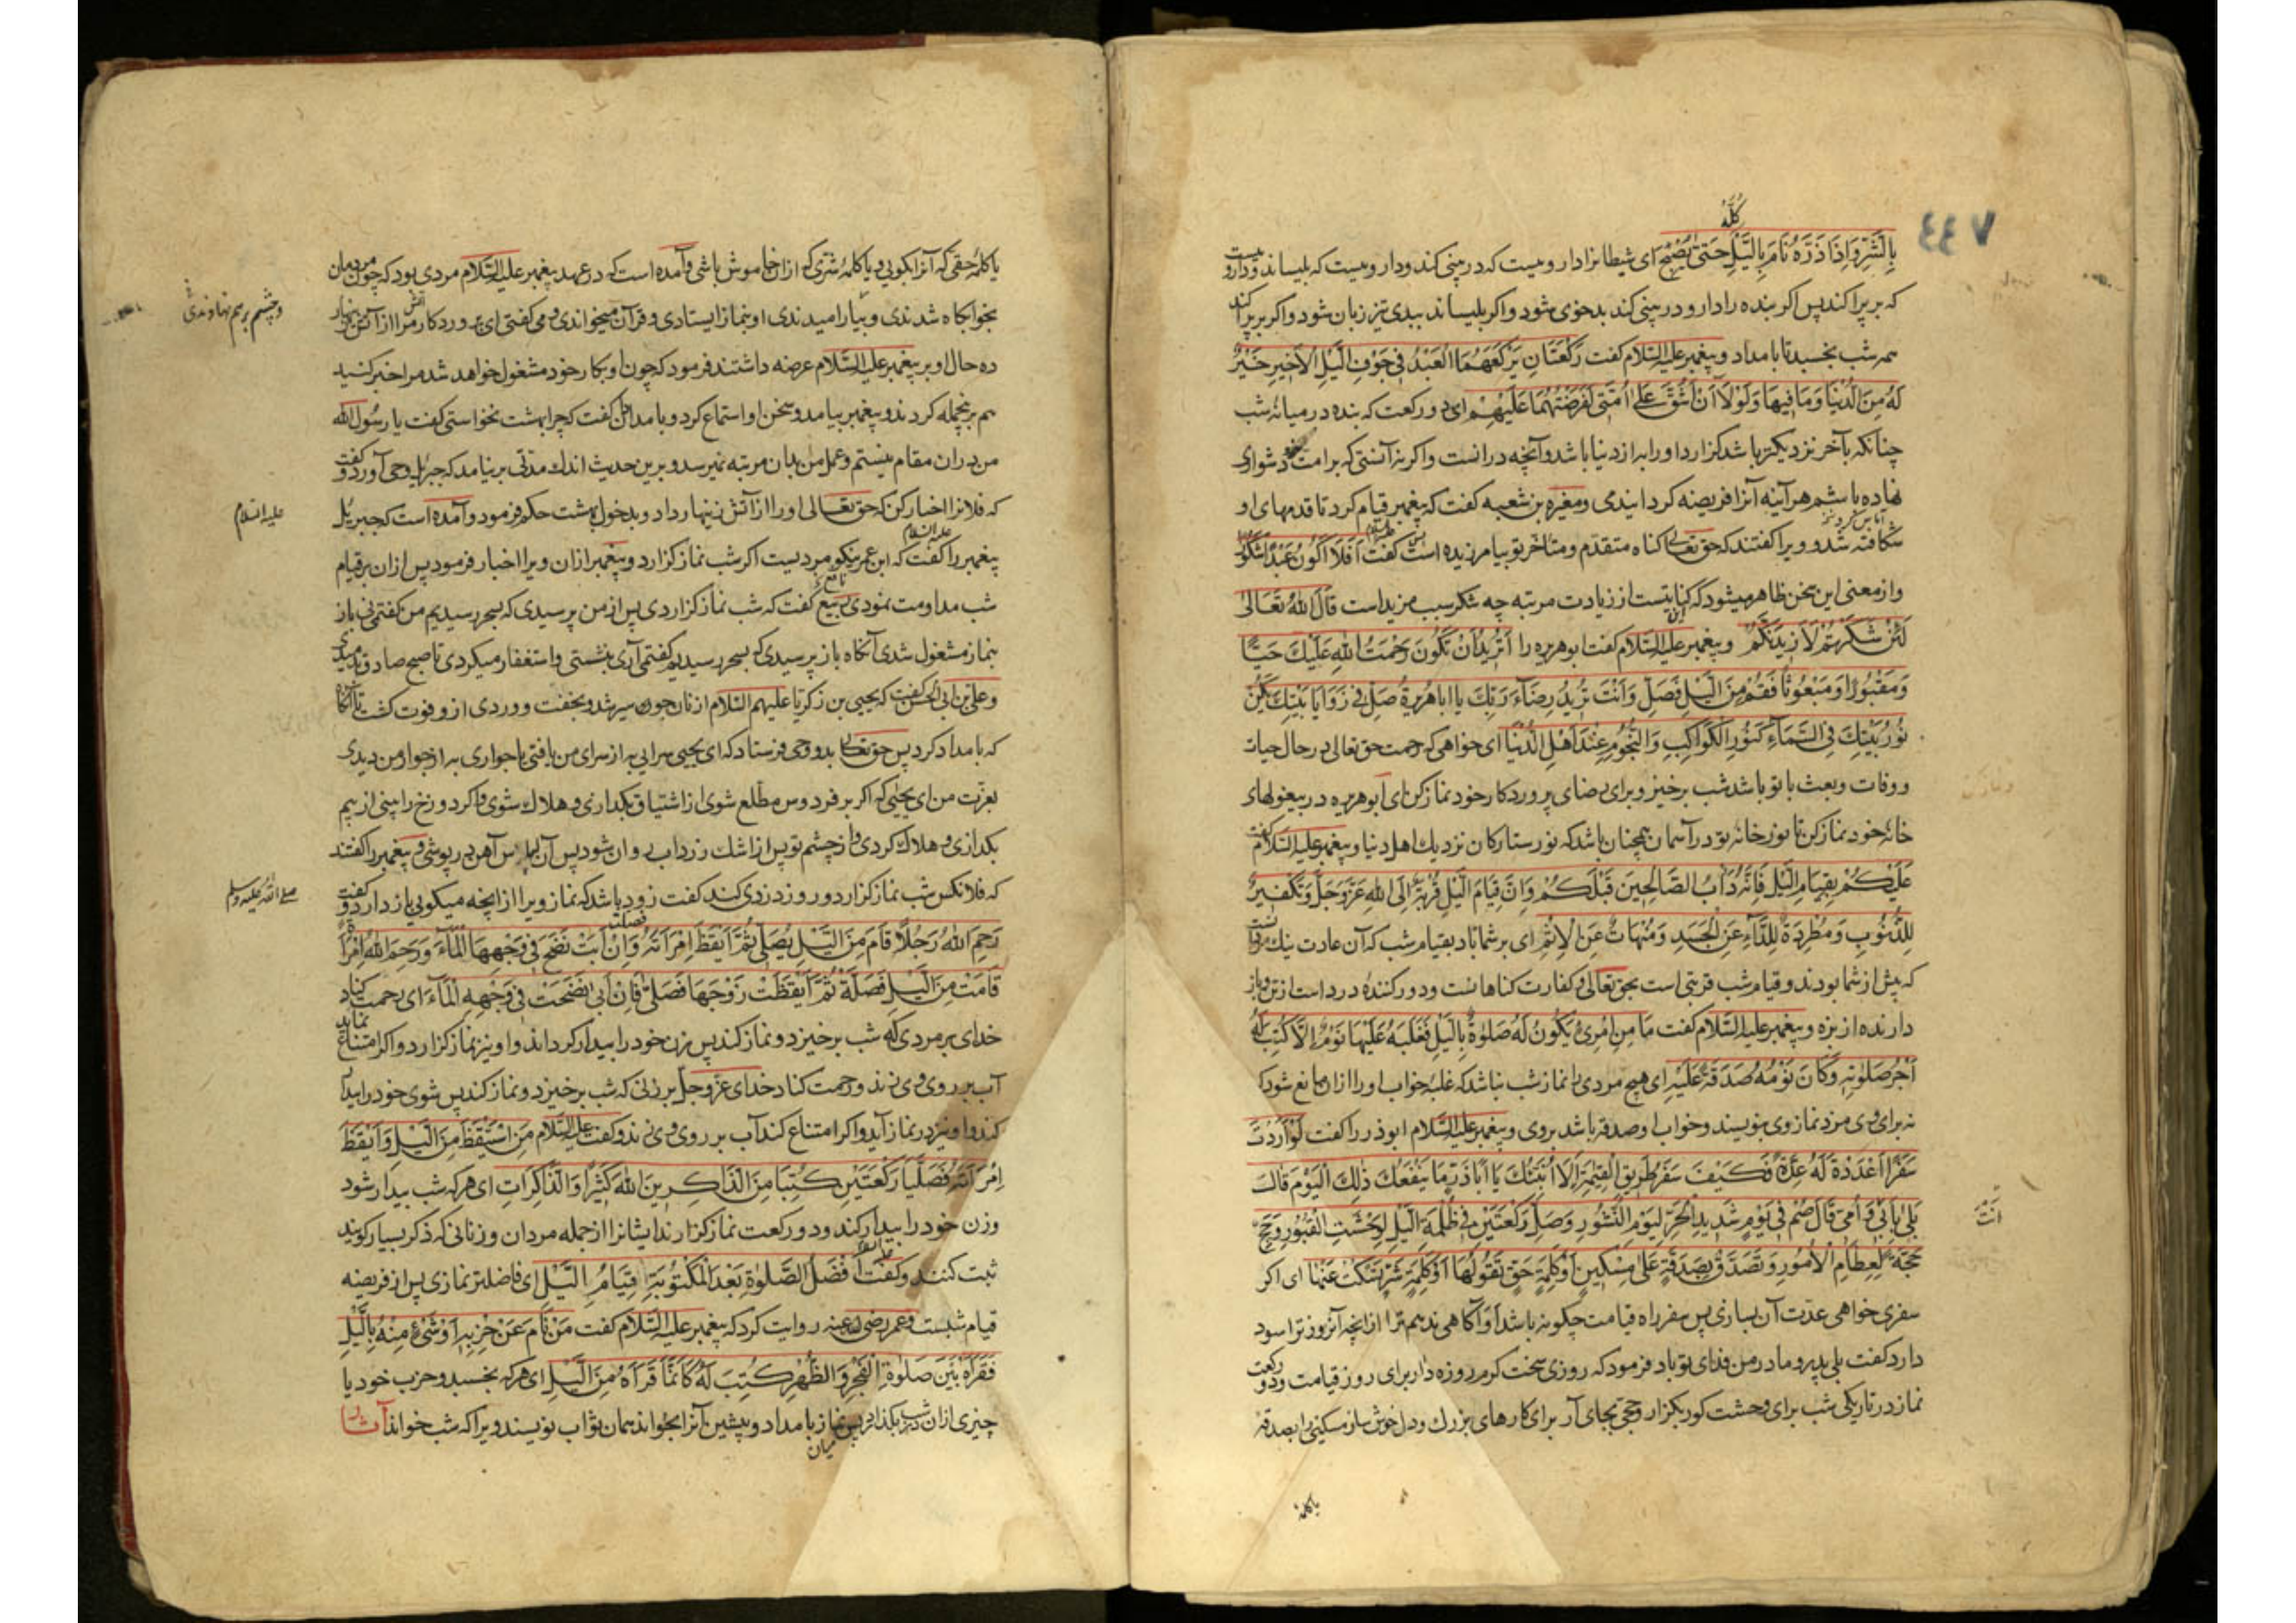 ٤٤٧
كُلَّهُ
بِالشَّرِّ وَاِذَا ذَرَّهُ نَامَ بِاللَّيْلِ حَتّىٰ يُصْبِحَ اى شيطانرا داروييست كه در بينى كند ودارو يست كه بليساند ودارو يست
كه بر پرا كند پس اكر بنده را دارو در بينى كند بدخوى شود واكر بليساند ببدى تيز زبان شود واكر بر پرا كند
همه شب بخسبد تا بامداد وپيغمبر عليه السّلام كفت رَكْعَتَانِ يَرْكَعَهُمَا الْعَبْدُ فِى جَوْفِ الَّيْلِ الْاَخِيرِ خَيْرٌ
لَهُ مِنَ الدُّنْيَا وَمَا فِيهَا وَلَوْلَا اَنْ اَشُقَّ عَلىٰ اُمَّتِى لَفَرَضْتُهُمَا عَلَيْهِمْ اى دو ركعت كه بنده در ميانهٔ شب
چنانكه بآخر نزديكتر باشد كزارد اورا به از دنيا باشد وآنچه درانست واكر نه آنستى كه بر امت خود شوارى
نهاده باشم هر آينه آنرا فريضه كردايندمى ومغيره بن شعبه كفت كه پيغمبر قيام كرد تا قدمهاى او
شكافته شد وويرا كفتند كه حق تعالى كناه متقدّم ومتأخر تو بيامرزيده است كفت اَفَلَا اَكُونُ عَبْدًا شَكُورًا
واز معنى اين سخن ظاهر ميشود كه كنايتست از زيادت مرتبه چه شكر سبب مزيد است قال الله تعالىٰ
لَئِنْ شَكَرْتُمْ لَاَزِيدَنَّكُمْ وپيغمبر عليه السّلام كفت ابوهريره را اَتُرِيدُ اَنْ تَكُونَ رَحْمَتُ اللهِ عَلَيْكَ حَيًّا
وَمَقْبُورًا وَمَبْعُوثًا فَقُمْ مِنَ الَّيْلِ فَصَلِّ وَاَنْتَ تُرِيدُ رِضَاءَ رَبِّكَ يا ابا هُرَيرةُ صَلِّ فِى زَوَايَا بَيْتِكَ يَكُنْ
نُورُ بَيْتِكَ فِى السَّمَاءِ كَنُورِ الْكَوَاكِبِ وَالنُّجُومِ عِنْدَ اَهْلِ الدُّنْيَا اى خواهى كه رحمت حق تعالى در حال حيات
ووفات وبعث با تو باشد شب برخيز وبراى رضاى پروردكار خود نماز كن اى ابوهريره در بيغولهاى
خانهٔ خود نماز كن تا نور خانهٔ تو در آسمان همچنان باشد كه نور ستاركان نزديك اهل دنيا وپيغمبر عليه السّلام كفت
عَلَيْكُمْ بِقِيَامِ الَّيْلِ فَاِنَّهُ دَأْبُ الصَّالِحِينَ قَبْلَكُمْ وَاِنَّ قِيَامَ الَّيْلِ قُرْبَةٌ اِلَى اللهِ عَزَّ وَجَلَّ وَتَكْفِيرٌ
لِلذُّنُوبِ وَمَطْرِدَةٌ لِلدَّاءِ عَنِ الْجَسَدِ وَمَنْهَاتٌ عَنِ الْاِثْمِ اى بر شما باد بقيام شب كه آن عادت نيك مردانست
كه پيش از شما بودند وقيام شب قربتى است بحق تعالى وكفارت كناهانست ودور كنندهٔ درد است از تن وباز
دارنده از بزه وپيغمبر عليه السّلام كفت مَا مِنِ امْرِئٍ يَكُونُ لَهُ صَلٰوةٌ بِالَّيْلِ فَغَلَبَهُ عَلَيْهَا نَوْمٌ اِلَّا كُتِبَ لَهُ
اَجْرُ صَلٰوتِهِ وَكَانَ نَوْمُهُ صَدَقَةً عَلَيْهِ اى هيچ مردى را نماز شب نباشد كه غلبهٔ خواب اورا ازان مانع شود كه
نه براى وى مزد نماز وى بنويسند وخواب او صدقه باشد بروى وپيغمبر عليه السّلام ابوذر را كفت لَوْ اَرَدْتَ
سَفَرًا اَعْدَدْتَ لَهُ عِدَّةً فَكَيْفَ سَفَرُ طَرِيقِ الْقِيٰمَةِ اَلَا اُنَبِّئُكَ يَا اَبَا ذَرٍّ مَا يَنْفَعُكَ ذٰلِكَ الْيَوْمَ قَالَ
بَلىٰ بِاَبِى وَاُمِّى قَالَ صُمْ فِى يَوْمٍ شَدِيدِ الْحَرِّ لِيَوْمِ النُّشُورِ وَصَلِّ رَكْعَتَيْنِ فِى ظُلْمَةِ الَّيْلِ لِوَحْشَتِ الْقُبُورِ وَحُجَّ
حَجَّةً لِعِظَامِ الْاُمُورِ وَتَصَدَّقْ بِصَدَقَةٍ عَلىٰ مِسْكِينٍ اَوْ كَلِمَةِ حَقٍّ تَقُولُهَا اَوْ كَلِمَةِ شَرٍّ تَسْكُتُ عَنْهَا اى اكر
سفرى خواهى عدّت آن بسازى پس سفر راه قيامت چكونه باشد اوّ آكاهى ندهم ترا از انچه آنروز ترا سود
دارد كفت بلى پدر ومادر من فداى تو باد فرمود كه روزى سخت كرم روزه دار براى روز قيامت ودو ركعت
نماز در تاريكى شب براى وحشت كور بكزار وحجّى بجاى آر براى كارهاى بزرك ودل خوش ساز مسكينى را بصدقهٔ
يا كلمهٔ
انت
يا كلمهٔ حقى كه آنرا بكويى ويا كلمهٔ شرّى كه ازان خاموش باشى وآمده است كه در عهد پيغمبر عليه السّلام مردى بود كه چون مردمان
بخوابكاه شدندى وبيارامیدندى او بنماز ايستادى وقرآن ميخواندى ومى كفتى اى پروردكار من مرا از آتش زنهار
ده حال او بر پيغمبر عليه السّلام عرضه داشتند فرمود كه چون او بكار خود مشغول خواهد شد مرا خبر كنيد
هم برنجمله كردند وپيغمبر بيامد وسخن او استماع كرد وبامدادان كفت كه چرا بهشت نخواستى كفت يا رسُول الله
من دران مقام نيستم وعمل من بدان مرتبه نميرسد وبرين حديث اندك مدّتى برنيامد كه جبرئيل وحى آورد وكفت
كه فلانرا اخبار كن كه حق تعالى اورا از آتش زينهار داد وبدخول بهشت حكم فرمود وآمده است كه جبرئيل
پيغمبر را كفت كه ابن عمر نيكو مرديست اكر شب نماز كزارد وپيغمبر ازان ويرا اخبار فرمود پس ازان بر قيام
شب مداومت نمودى ربيع كفت كه شب نماز كزاردى پس از من پرسيدى كه بسحر رسيديم من كفتمى نى باز
بنماز مشغول شدى آنكاه باز پرسيدى كه بسحر رسيديم كفتمى آرى بنشستى واستغفار ميكردى تا صبح صادق بدميدى
وعلى بن ابى الحسن كفت كه يحيى بن زكريا عليهم السّلام از نان جوين سير شد وبخفت ووردى ازو فوت كشت تا آنكاه
كه بامداد كرد پس حق تعالى بدو وحى فرستاد كه اى يحيى سرايى به از سراى من يافتى يا جوارى به از جوار من ديدى
بعزّت من اى يحيى كه اكر بر فردوس مطّلع شوى از اشتياق بكدازى وهلاك شوى واكر دوزخ را بينى از بيم
بكدازى وهلاك كردى واز چشم تو پس از اشك زرداب روان شود پس آن لباس آهن در پوشى وپيغمبر را كفتند
كه فلانكس شب نماز كزارد وروز دزدى كند كفت زود باشد كه نماز ويرا از انچه ميكويى باز دارد وكفت
رَحِمَ اللهُ رَجُلًا قَامَ مِنَ الَّيْلِ يُصَلِّى ثُمَّ اَيْقَظَ امْرَأَتَهُ وَاِنْ اَبَتْ نَضَحَ فِى وَجْهِهَا الْمَاءَ وَرَحِمَ اللهُ امْرَأَةً
قَامَتْ مِنَ الَّيْلِ فَصَلَّتْ ثُمَّ اَيْقَظَتْ زَوْجَهَا فَصَلّىٰ فَاِنْ اَبىٰ نَضَحَتْ فِى وَجْهِهِ الْمَاءَ اى رحمت كناد
خداى بر مردى كه شب برخيزد ونماز كند پس زن خود را بيدار كرداند واو نيز نماز كزارد واكر امتناع نمايد
آب بر روى وى زند ورحمت كناد خداى عزّ وجلّ بر زنى كه شب برخيزد ونماز كند پس شوى خود را بيدار
كند واو نيز در نماز آيد واكر امتناع كند آب بر روى وى زند وكفت عليه السّلام مَنِ اسْتَيْقَظَ مِنَ الَّيْلِ وَاَيْقَظَ
اِمْرَأَتَهُ فَصَلَّيَا رَكْعَتَيْنِ كُتِبَا مِنَ الذَّاكِرِينَ اللهَ كَثِيرًا وَالذَّاكِرَاتِ اى هركه شب بيدار شود
وزن خود را بيدار كند ودو ركعت نماز كزارند ايشانرا از جمله مردان وزنانى كه ذكر بسيار كويند
ثبت كنند وكفت اَفْضَلُ الصَّلٰوةِ بَعْدَ الْمَكْتُوبَةِ قِيَامُ الَّيْلِ اى فاضلتر نمازى پس از فريضه
قيام شبست وعمر رضى الله عنه روايت كرد كه پيغمبر عليه السّلام كفت مَنْ نَامَ عَنْ حِزْبِهِ اَوْ شَىْءٍ مِنْهُ بِالَّيْلِ
فَقَرَأَهُ بَيْنَ صَلٰوةِ الْفَجْرِ وَالظُّهْرِ كُتِبَ لَهُ كَاَنَّمَا قَرَأَهُ مِنَ الَّيْلِ اى هركه بخسبد وحزب خود يا
چيزى ازان شب بكذارد پس ميان نماز بامداد وپيشين آنرا بخواند همان ثواب نويسند ويرا كه شب خواند آثار
وچشم بر هم نهادندى
عليه السلام
صلى الله عليه وسلم